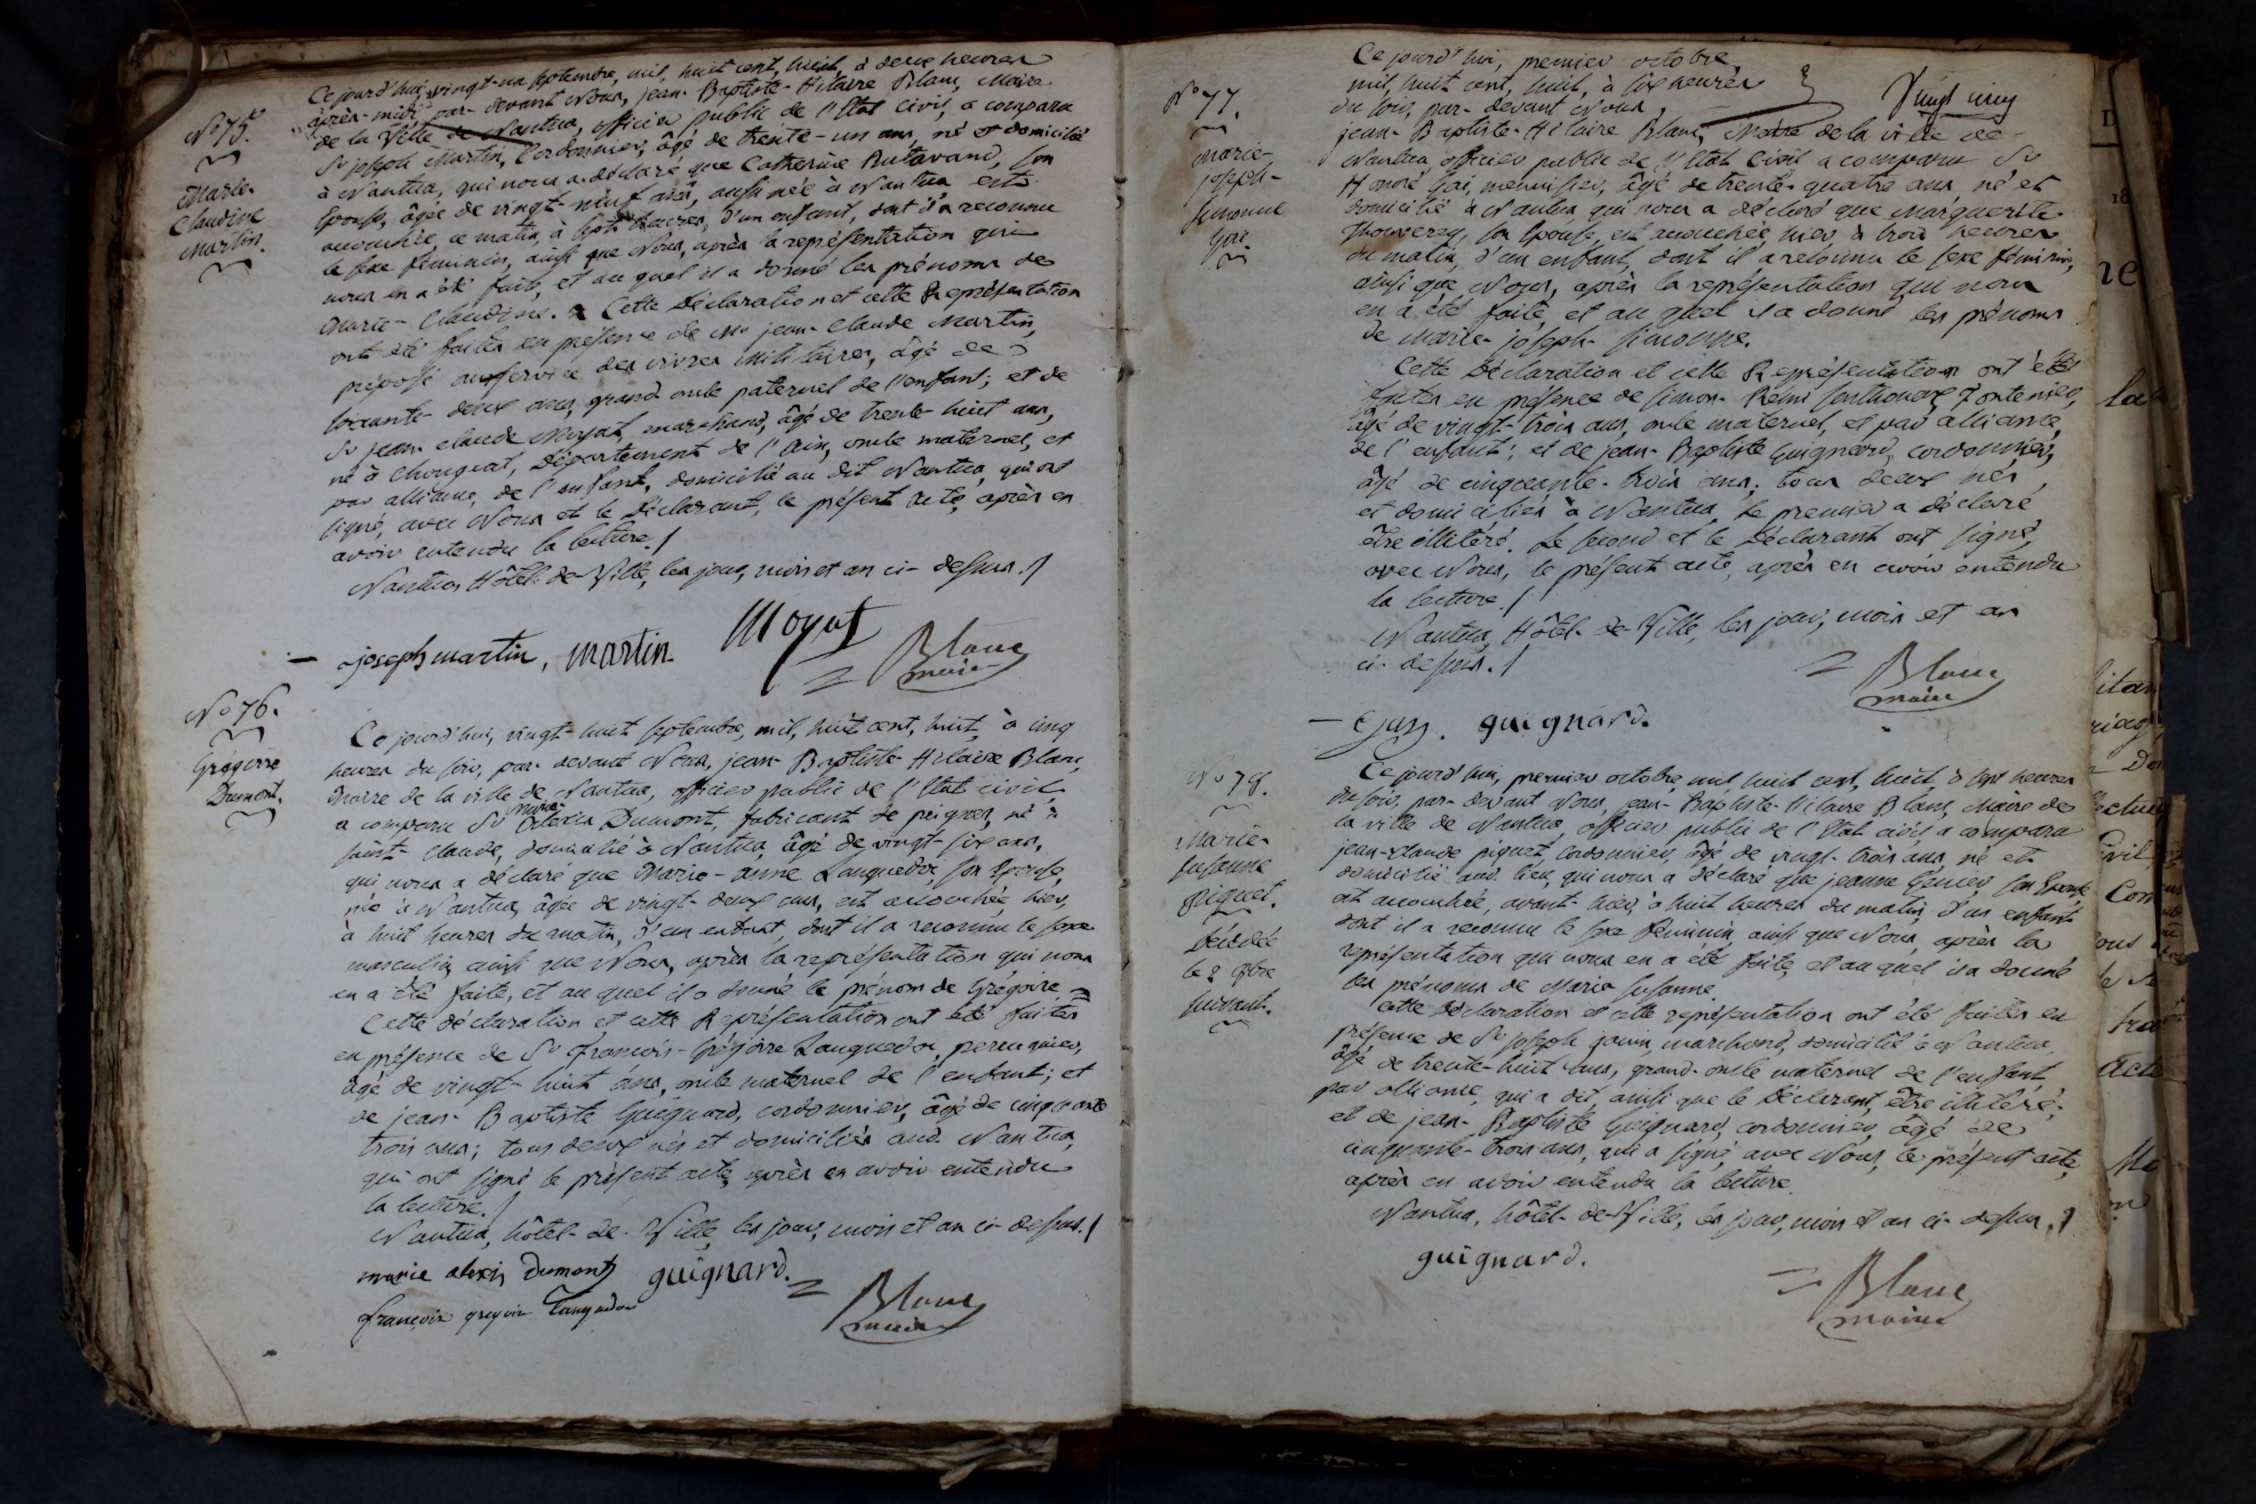 N° 75.
Marie-
Claudine
Martin.
Ce jourd'hui, vingt-un septembre, mil, huit cent, huit, à deux heures
après-midi par-devant Nous, jean-Baptiste-Hilaire Blanc, Maire
de la Ville de Nantua, officier public de l'Etat civil, a comparu
Sr joseph Martin, Cordonnier, âgé de trente-un ans, né et domicilié
à Nantua, qui nous a déclaré que Catherine Rutavand, son
Epouse, âgée de vingt-neuf ans, aussi née à Nantua est
accouchée, ce matin, à sept heures, d'un enfant, dont il a reconnu
le sexe féminin, ainsi que Nous, après la représentation qui
nous en a été faite, et au quel il a donné les prénoms de
Marie-Claudine. Cette Déclaration et cette Représentation
ont été faites en présence de Mr jean-Claude Martin,
préposé au service des vivres militaires, âgé de
soixante-deux ans, grand oncle paternel de l'enfant; et de
Sr jean-claude Moyat, marchand, âgé de trente-huit ans,
né à Chougeat, Département de l'Ain, oncle maternel, et
par alliance, de l'enfant, domicilié au dit Nantua, qui ont
signé, avec Nous et le Déclarant, le présent acte, après en
avoir entendu la lecture./
Nantua, Hôtel-de-Ville, les jour, mois et an ci-dessus./
joseph martin, martin Moyat
Blanc
maire
N° 76.
Grégoire
Dumont.
Ce jourd'hui, vingt-huit septembre, mil, huit cent, huit, à cinq
heures du soir, par-devant Nous, jean-Baptiste-Hilaire Blanc,
Maire de la ville de Nantua, officier public de l'Etat civil,
marie-
a comparu Sr Alexis Dumont, fabricant de peignes, né à
saint-Claude, domicilié à Nantua, âgé de vingt-six ans,
qui nous a déclaré que Marie-anne Languedoc, son Epouse,
née à Nantua, âgée de vingt-deux ans, est accouchée, hier,
à huit heures du matin, d'un enfant, dont il a reconnu le sexe
masculin, ainsi que Nous, après la représentation qui nous
en a été faite, et au quel il a donné le prénom de Grégoire.
Cette déclaration et cette Représentation ont été faites
en présence de Sr françois-Grégoire Languedoc, perruquier,
âgé de vingt-huit ans, oncle maternel de l'enfant; et
de jean-Baptiste Guignard, cordonnier, âgé de cinquante
trois ans; tous deux nés et domiciliés aud. Nantua,
qui ont signé le présent acte, après en avoir entendu
la lecture./
Nantua, hôtel-de-Ville, les jour, mois et an ci-dessus./
marie alexis Dumont guignard.
françois gregoire Languedoc
Blanc
maire
Vingt cinq
N° 77.
Marie-
joseph-
simonne
Gai
Ce jourd'hui, premier octobre,
mil, huit cent, huit, à six heures
du soir, par-devant Nous,
jean-Baptiste-Hilaire Blanc, Maire de la ville de
Nantua officier public de l'Etat Civil a comparu Sr
Honoré Gai, menuisier, âgé de trente-quatre ans né et
domicilié à Nantua, qui nous a déclaré que Marguerite
, son Epouse, est accouchée, hier, à trois heures
du matin, d'un enfant, dont il a reconnu le sexe féminin,
ainsi que Nous, après la représentation qui nous
en a été faite, et au quel il a donné les prénoms
de Marie-joseph-simonne.
Cette Déclaration et cette Représentation ont été
faites en présence de simon-Rémi
âgé de vingt-trois ans, oncle maternel, et par alliance,
de l'enfant; et de jean-Baptiste Guignard, cordonnier,
âgé de cinquante-trois ans; tous deux nés
et domiciliés à Nantua, le premier a déclaré
être illitéré. Le second et le Déclarant ont signé,
avec Nous, le présent acte, après en avoir entendu
la lecture./
Nantua, Hôtel-de-Ville, les jour, mois et an
ci-dessus./
Blanc
maire
guignard.
N° 78.
Marie-
susanne
Piguet.
Décédée
le 2 9bre
suivant.
Ce jourd'hui, premier octobre, mil, huit cent, huit, à sept heures
du soir, par-devant Nous, jean-Baptiste-Hilaire Blanc, Maire de
la ville de Nantua, officier public de l'Etat civil a comparu
jean-claude piguet, cordonnier, âgé de vingt-trois ans né et
domicilié aud. lieu, qui nous a déclaré que jeanne , son Epouse
est accouchée, avant-hier, à huit heures du matin, d'un enfant
dont il a reconnu le sexe féminin, ainsi que Nous, après la
représentation qui nous en a été faite, et au quel il a donné
les prénoms de Marie susanne.
Cette Déclaration et cette représentation ont été faites en
présence de Sr joseph , marchand, domicilié à Nantua,
âgé de trente-huit ans, grand-oncle maternel de l'enfant
par alliance, qui a dit, ainsi que le Déclarant, être illitéré;
et de jean-Baptiste Guignard, cordonnier, âgé de
cinquante-trois ans, qui a signé, avec Nous, le présent acte,
après en avoir entendu la lecture.
Nantua, hôtel-de-Ville, les jour, mois et an ci-dessus./
guignard.
Blanc
maire